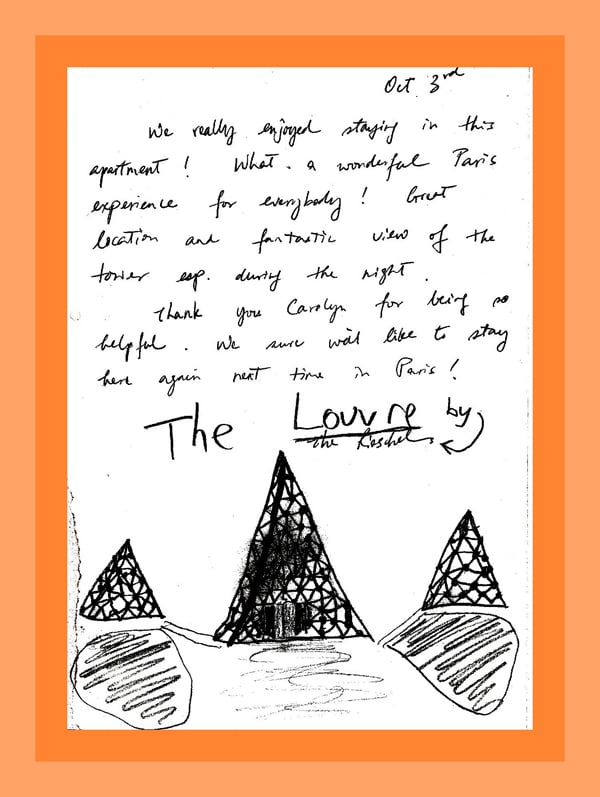 Oct 3rd
We really enjoyed staying in this
apartment! What a wonderful Paris
experience for everybody! Great
location and fantastic view of the
tower esp. during the night.
Thank you Carolyn for being so
helpful. We sure we'd like to stay
here again next time in Paris!
The Louvre by
the